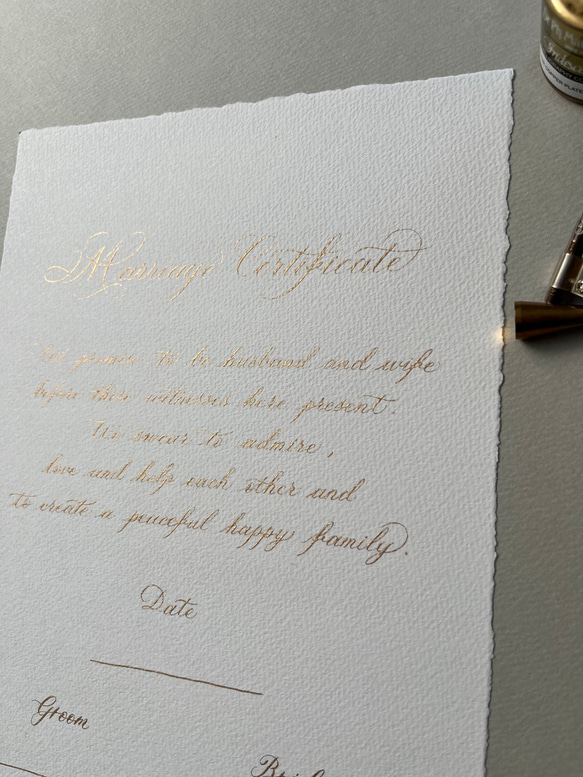 Marriage Certificate
We promise to be husband and wife
before these witnesses here present.
We swear to admire,
love and help each other and
to create a peaceful happy family.
Date
Groom